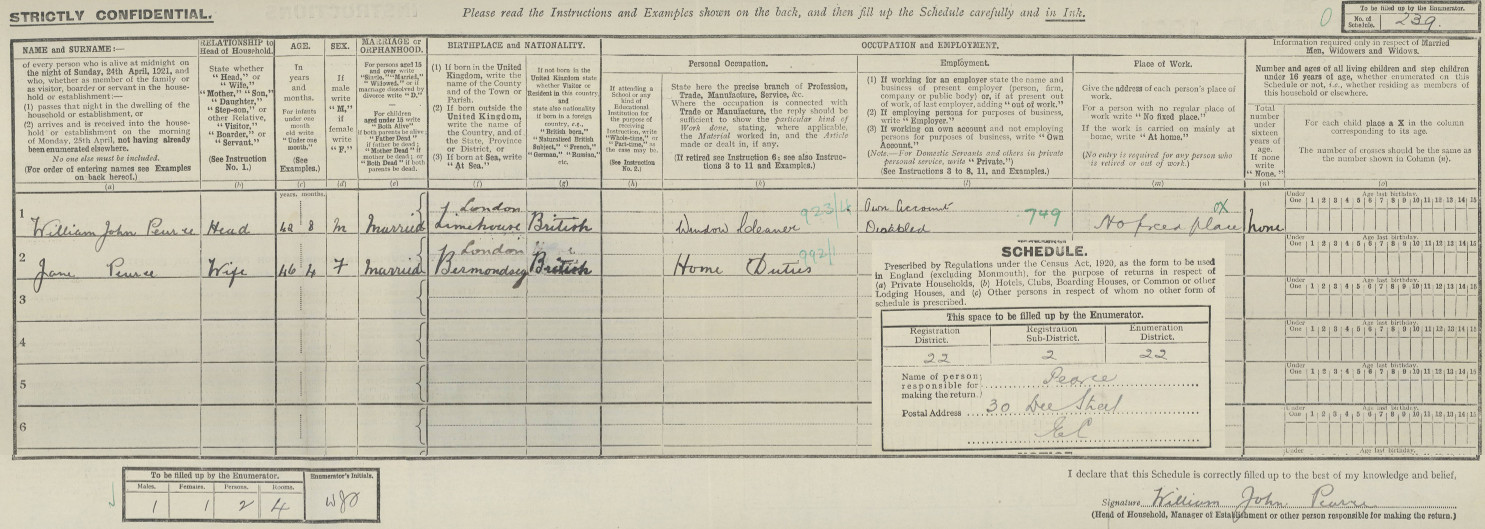 STRICTLY CONFIDENTIAL.
Please read the Instructions and Examples shown on the back, and then fill up the Schedule carefully and in Ink.
To be filled up by the Enumerator.
No. of Schedule. 239.
NAME and SURNAME:—
of every person who is alive at midnight on
the night of Sunday, 24th April, 1921, and
who, whether as member of the family or
as visitor, boarder or servant in the house-
hold or establishment:—
(1) passes that night in the dwelling of the
household or establishment, or
(2) arrives and is received into the house-
hold or establishment on the morning
of Monday, 25th April, not having already
been enumerated elsewhere.
No one else must be included.
(For order of entering names see Examples
on back hereof.)
(a)
RELATIONSHIP to
Head of Household.
State whether
"Head," or
"Wife,"
"Mother," "Son,"
"Daughter,"
"Step-son," or
other Relative,
"Visitor,"
"Boarder," or
"Servant."
(See Instruction
No. 1.)
(b)
AGE.
In
years
and
months.
For infants
under one
month
old write
"Under one
month."
(See
Examples.)
(c)
SEX.
If
male
write
"M,"
if
female
write
"F."
(d)
MARRIAGE or
ORPHANHOOD.
For persons aged 15
and over write
"Single," "Married,"
"Widowed," or if
marriage dissolved by
divorce write "D."
For children
aged under 15 write
"Both Alive"
if both parents be alive;
"Father Dead"
if father be dead;
"Mother Dead" if
mother be dead; or
"Both Dead" if both
parents be dead.
(e)
BIRTHPLACE and NATIONALITY.
(1) If born in the United
Kingdom, write the
name of the County
and of the Town or
Parish.
(2) If born outside the
United Kingdom,
write the name of the
Country, and of the
State, Province
or District, or
(3) If born at Sea, write
"At Sea."
(f)
If not born in the
United Kingdom state
whether Visitor or
Resident in this country,
and
state also nationality
if born in a foreign
country, e.g.,
"British born,"
"Naturalised British
Subject," "French,"
"German," "Russian,"
(g)
OCCUPATION and EMPLOYMENT.
If attending a
School or any
kind of
Educational
Institution for
the purpose of
receiving
Instruction, write
"Whole-time," or
"Part-time," as
the case may be.
(See Instruction
No. 2.)
(h)
Personal Occupation.
State here the precise branch of Profession,
Trade, Manufacture, Service, &c.
Where the occupation is connected with
Trade or Manufacture, the reply should be
sufficient to show the particular kind of
Work done, stating, where applicable,
the Material worked in, and the Article
made or dealt in, if any.
(If retired see Instruction 6; see also Instruc-
tions 3 to 11 and Examples.)
(k)
Employment.
(1) If working for an employer state the name and
business of present employer (person, firm,
company or public body) or, if at present out
of work, of last employer, adding "out of work."
(2) If employing persons for purposes of business,
write "Employer."
(3) If working on own account and not employing
persons for purposes of business, write "Own
Account."
(Note.—For Domestic Servants and others in private
personal service, write "Private.")
(See Instructions 3 to 8, 11, and Examples.)
(l)
Place of Work.
Give the address of each person's place of
work.
For a person with no regular place of
work write "No fixed place."
If the work is carried on mainly at
home, write "At home."
(No entry is required for any person who
is retired or out of work.)
(m)
Information required only in respect of Married
Men, Widowers and Widows.
Number and ages of all living children and step children
under 16 years of age, whether enumerated on this
Schedule or not, i.e., whether residing as members of
this household or elsewhere.
Total
number
under
sixteen
years of
age.
If none
write
"None."
(n)
For each child place a X in the column
corresponding to its age.
The number of crosses should be the same as
the number shown in Column (n).
(o)
years. months.
Under One Age last birthday. 1 2 3 4 5 6 7 8 9 10 11 12 13 14 15
1 William John Pearce Head 8 M Married London Limehouse British Window Cleaner Own Account Disabled 749 No fixed place None
2 Jane Pearce Wife 46 4 F Married London Bermondsey British Home Duties
3
4
5
6
SCHEDULE.
Prescribed by Regulations under the Census Act, 1920, as the form to be used
in England (excluding Monmouth), for the purpose of returns in respect of
(a) Private Households, (b) Hotels, Clubs, Boarding Houses, or Common or other
Lodging Houses, and (c) Other persons in respect of whom no other form of
schedule is prescribed.
This space to be filled up by the Enumerator.
Registration District. Registration Sub-District. Enumeration District.
22 2 22
Name of person responsible for making the return. Pearce
Postal Address 30 Dee Street
To be filled up by the Enumerator. Enumerator's Initials.
Males. Females. Persons. Rooms.
1 1 2 4
I declare that this Schedule is correctly filled up to the best of my knowledge and belief,
Signature William John Pearce
(Head of Household, Manager of Establishment or other person responsible for making the return.)